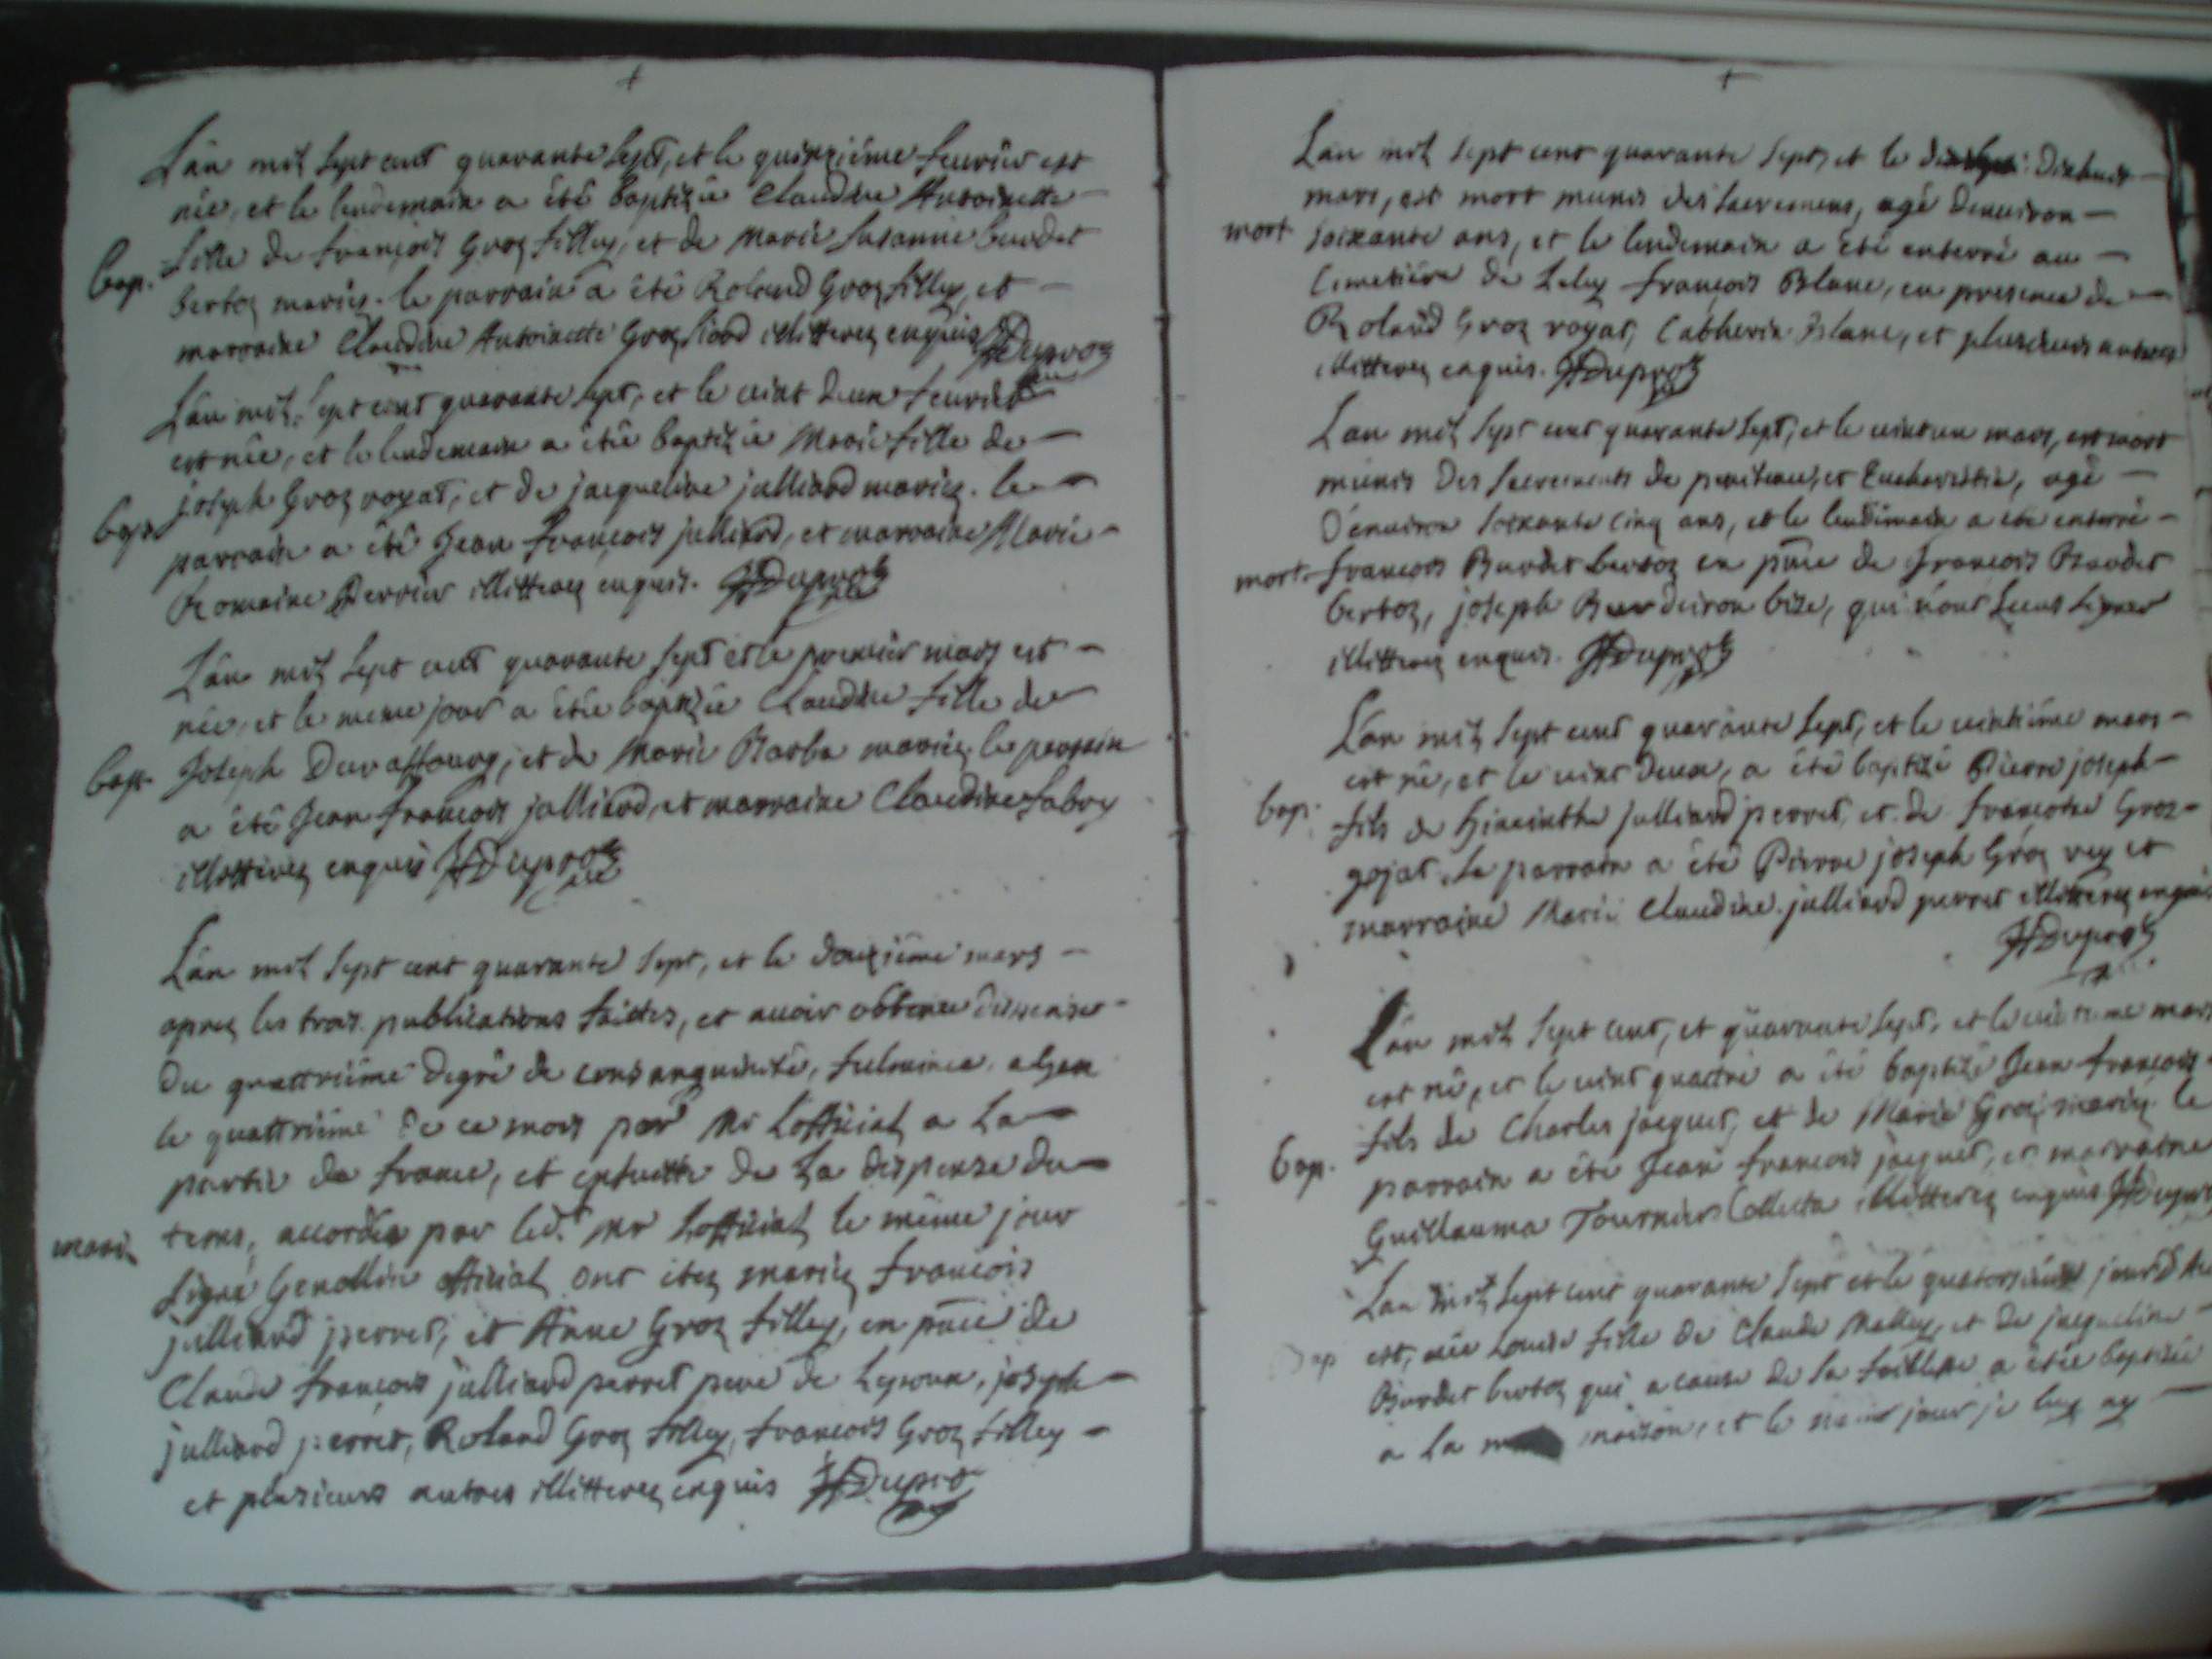 L'an mil sept cent quarante sept, et le quinziéme feurier est
née, et le lendemain a été baptizée Claudine Antoinette
bap. fille de françois Groz filley, et de Marie Susanne burdet
bertoz mariés. le parrain a été Roland Groz filley, et
marraine Claudine Antoinette Groz illitterez enquis HDuproz
L'an mil sept cent quarante sept, et le vint deux feurier
est née, et le lendemain a étée baptizée Marie fille de
bap. joseph Groz royat, et de jacqueline julliard mariez. le
parrain a été Jean françois julliard, et marraine Marie
Romaine Perrier illitterez enquis. HDuproz
L'an mil sept cent quarante sept et le premier mars est
née, et le meme jour a étée baptizée Claudine fille de
bap. Joseph Duraffourg, et de Marie Barba mariez. le parrain
a été Jean françois julliard, et marraine Claudine fabry
illitterez enquis HDuproz
L'an mil sept cent quarante sept, et le douziéme mars
aprez les trois publications faictes, et auoir obtenu dispense
du quattriéme degré de consanguinité, fulminée a Gex
le quattriéme de ce mois par Mr Lofficial a La
partie de france, et ensuitte de La dispense du
mariez tems, accordée par led.t Mr Lofficial le même jour
signé Genollin official ont étez mariez françois
julliard perret, et Anne Groz filley, en pnce de
Claude françois julliard perret pere de Lepoux, joseph
julliard perret, Roland Groz filley, françois Groz filley
et plusieurs autres illitterez enquis HDuproz
L'an mil sept cent quarante sept, et le dixhuit
mars, est mort munis des Sacremens, agé denuiron
mort soixante ans, et le lendemain a été enterré au
Cimetiére de Lelex françois Blanc, en presence de
Roland Groz royat, Catherin Blanc, et plusieurs autres
illitterez enquis. HDuproz
L'an mil sept cent quarante sept, et le vintun mars, est mort
munis des Sacrements de penitence, et Eucharistie, agé
D'enuiron soixante cinq ans, et le lendemain a été enterré
mort. françois Burdet bertoz en pnce de françois Burdet
bertoz, joseph Burdeiron bize, qui n'ont sceus signer
illitterez enquis. HDuproz
L'an mil sept cent quarante sept, et le vintiéme mars
est né, et le vint deux, a été baptizé Pierre joseph
bap. fils de hiacinthe julliard perret, et de françoise Groz
gojat. le parrain a été Pierre joseph Groz rey et
marraine Marie Claudine julliard perret illitterez enquis
HDuproz
L'an mil sept cent, et quarante sept, et le mars
est né, et le vint quattre a été baptizé Jean françois
fils de Charles jacquet, et de Marie Groz mariez le
bap. parrain a été Jean françois jacquet, et marraine
Guillauma Tournier Collecta illitterez enquis HDuproz
L'an mil sept cent quarante sept et le
est née Louise fille de Claude Malley, et de jacqueline
Burdet bertoz qui a cause de sa foiblesse a étée baptizée
a La maison, et le jour je luy ay